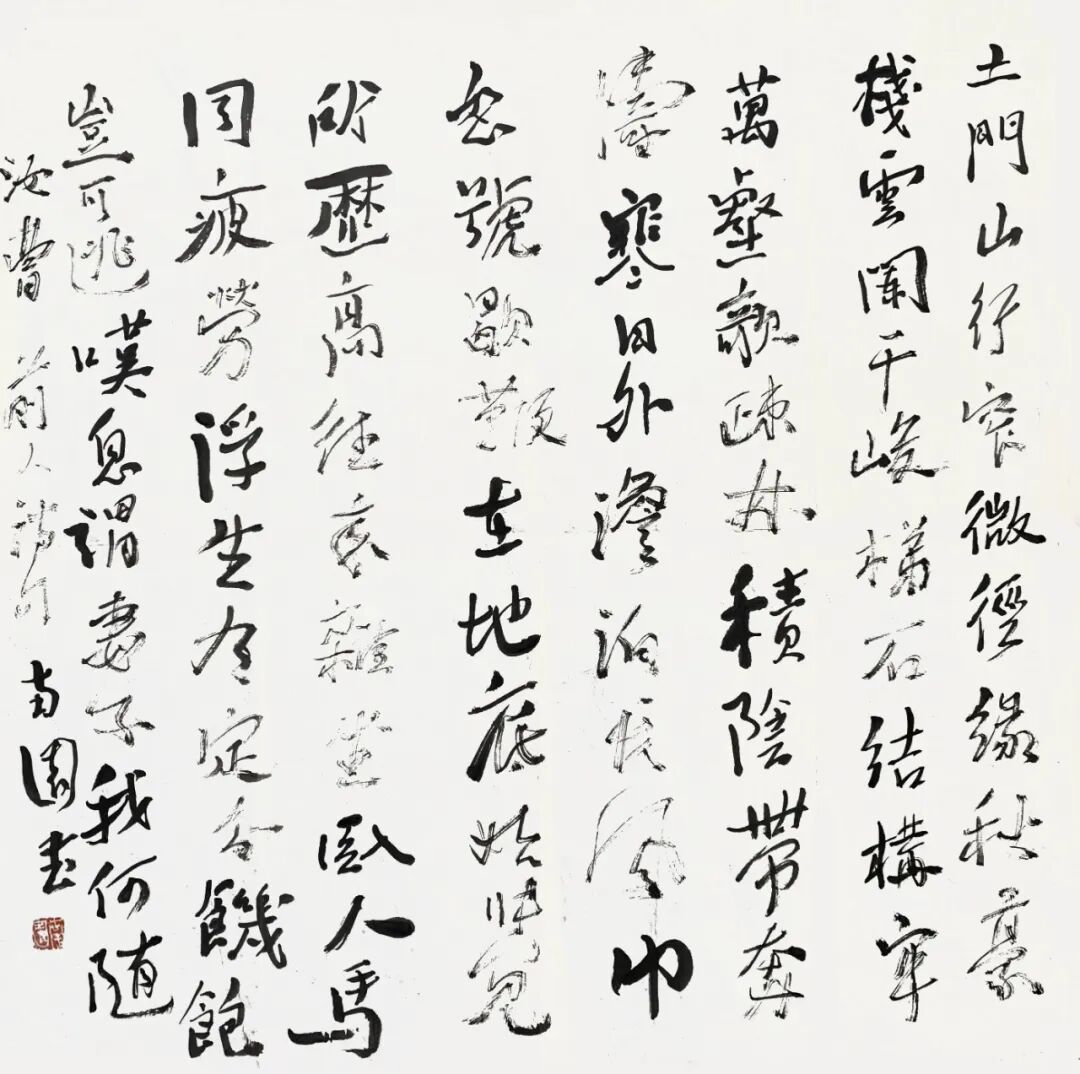 土門山行窄微徑緣秋豪
棧雲闌干峻梯石結構牢
萬壑欹疎林積陰帶奔
濤寒日外澹泊長風中
怒號歇鞍在地底始覺
所歷高往來雜坐臥人馬
同疲勞浮生有定分饑飽
豈可逃嘆息謂妻子我何隨
汝曹 前人詩句 南園書